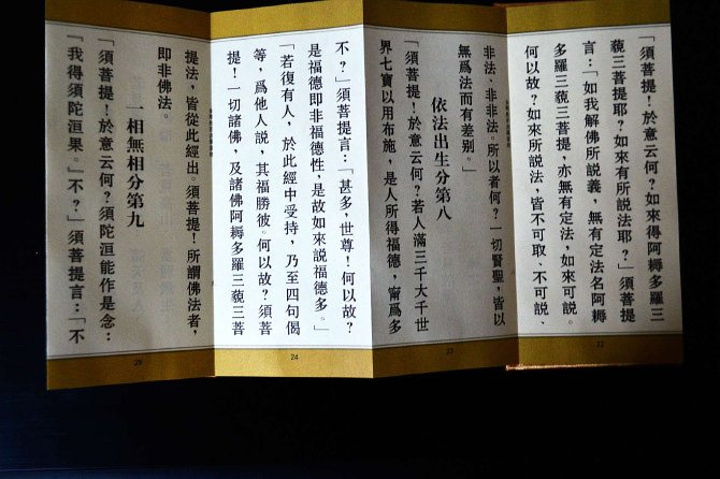 「須菩提！於意云何？如來得阿耨多羅三
藐三菩提耶？如來有所說法耶？」須菩提
言：「如我解佛所說義，無有定法名阿耨
多羅三藐三菩提，亦無有定法，如來可說。
何以故？如來所說法，皆不可取、不可說、
22
非法、非非法。所以者何？一切賢聖，皆以
無爲法而有差别。」
依法出生分第八
「須菩提！於意云何？若人滿三千大千世
界七寶以用布施，是人所得福德，甯爲多
23
不？」須菩提言：「甚多，世尊！何以故？
是福德即非福德性，是故如來說福德多。」
「若復有人，於此經中受持，乃至四句偈
等，爲他人說，其福勝彼。何以故？須菩
提！一切諸佛，及諸佛阿耨多羅三藐三菩
24
提法，皆從此經出。須菩提！所謂佛法者，
即非佛法。
一相無相分第九
「須菩提！於意云何？須陀洹能作是念：
『我得須陀洹果。』不？」須菩提言：「不
25